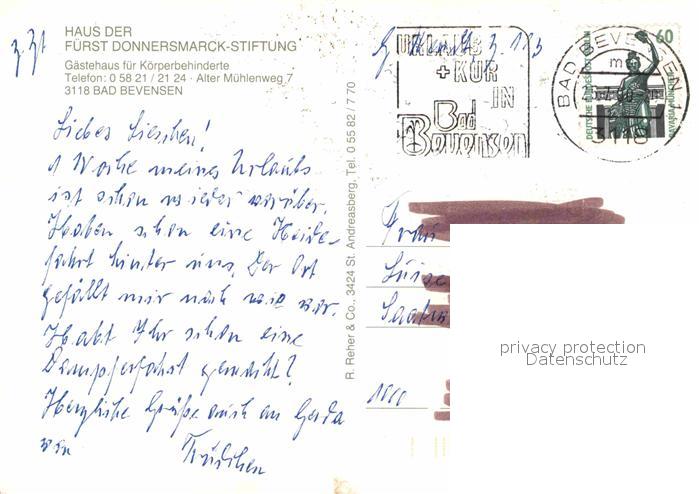 z. Zt.
HAUS DER
FÜRST DONNERSMARCK-STIFTUNG
Gästehaus für Körperbehinderte
Telefon: 0 58 21 / 21 24 · Alter Mühlenweg 7
3118 BAD BEVENSEN
Liebes Lieschen!
1 Woche meines Urlaubs
ist schon wieder vorüber.
Haben schon eine Heide-
fahrt hinter uns. Der Ort
gefällt mir nach wie vor.
Habt Ihr schon eine
Dampferfahrt gemacht?
Herzliche Grüße auch an Gerda
von Trudchen
R. Reher & Co., 3424 St. Andreasberg, Tel. 0 55 82 / 7 70
URLAUB
+ KUR
IN
Bad
Bevensen
BAD BEVENSEN
3118
60
DEUTSCHE BUNDESPOST BERLIN
Frau
Luise
1000
privacy protection
Datenschutz